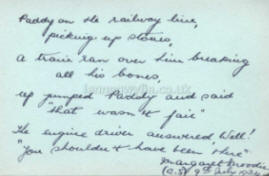 Paddy on the railway line,
picking up stones,
A train ran over him breaking
all his bones,
Up jumped Paddy and said
"that wasn't fair"
The engine driver answered Well!
"You shouldn't have been there"
Margaret
9th July